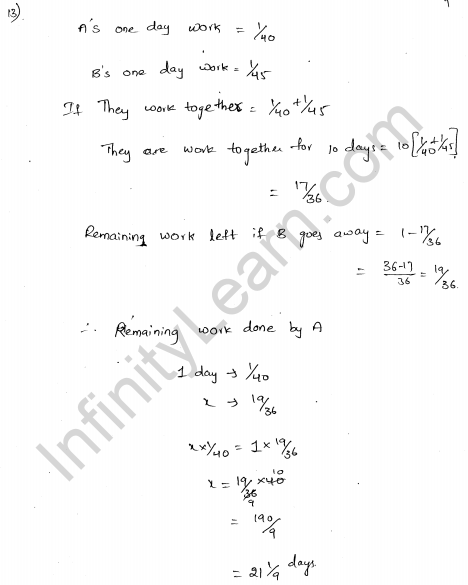 13)
A's one day work = 1/40
B's one day work = 1/45
If They work together = 1/40 + 1/45
They are work together for 10 days = 10[1/40 + 1/45]
= 17/36.
Remaining work left if B goes away = 1 - 17/36
= 36-17/36 = 19/36.
∴ Remaining work done by A
1 day → 1/40
x → 19/36
x × 1/40 = 1 × 19/36
x = 19/36 × 40 10
9
= 190/9
= 21 1/9 days
InfinityLearn.com